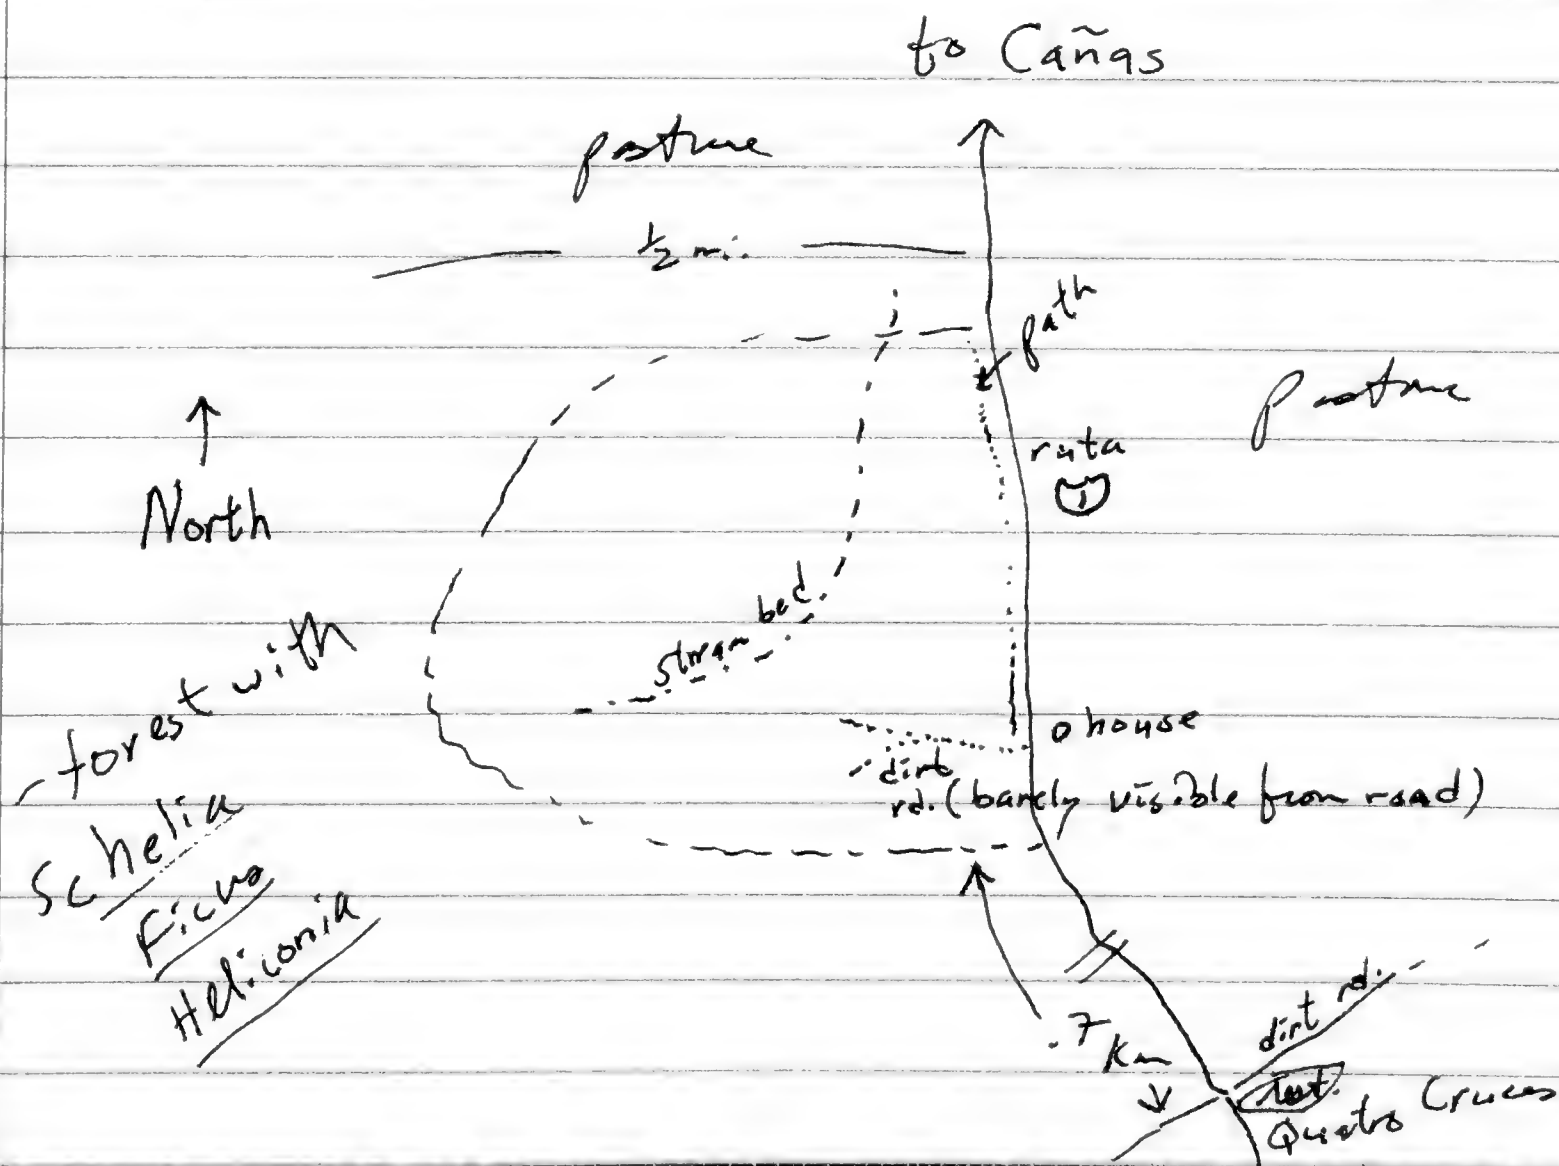 to Cañas
pasture
1/2 mi.
path
Pasture
ruta
1
North
stream bed
forest with
Schelia
Ficus
Heliconia
o house
dirt
rd. (barely visible from road)
.7
Km
dirt rd.
Quatro Cruces